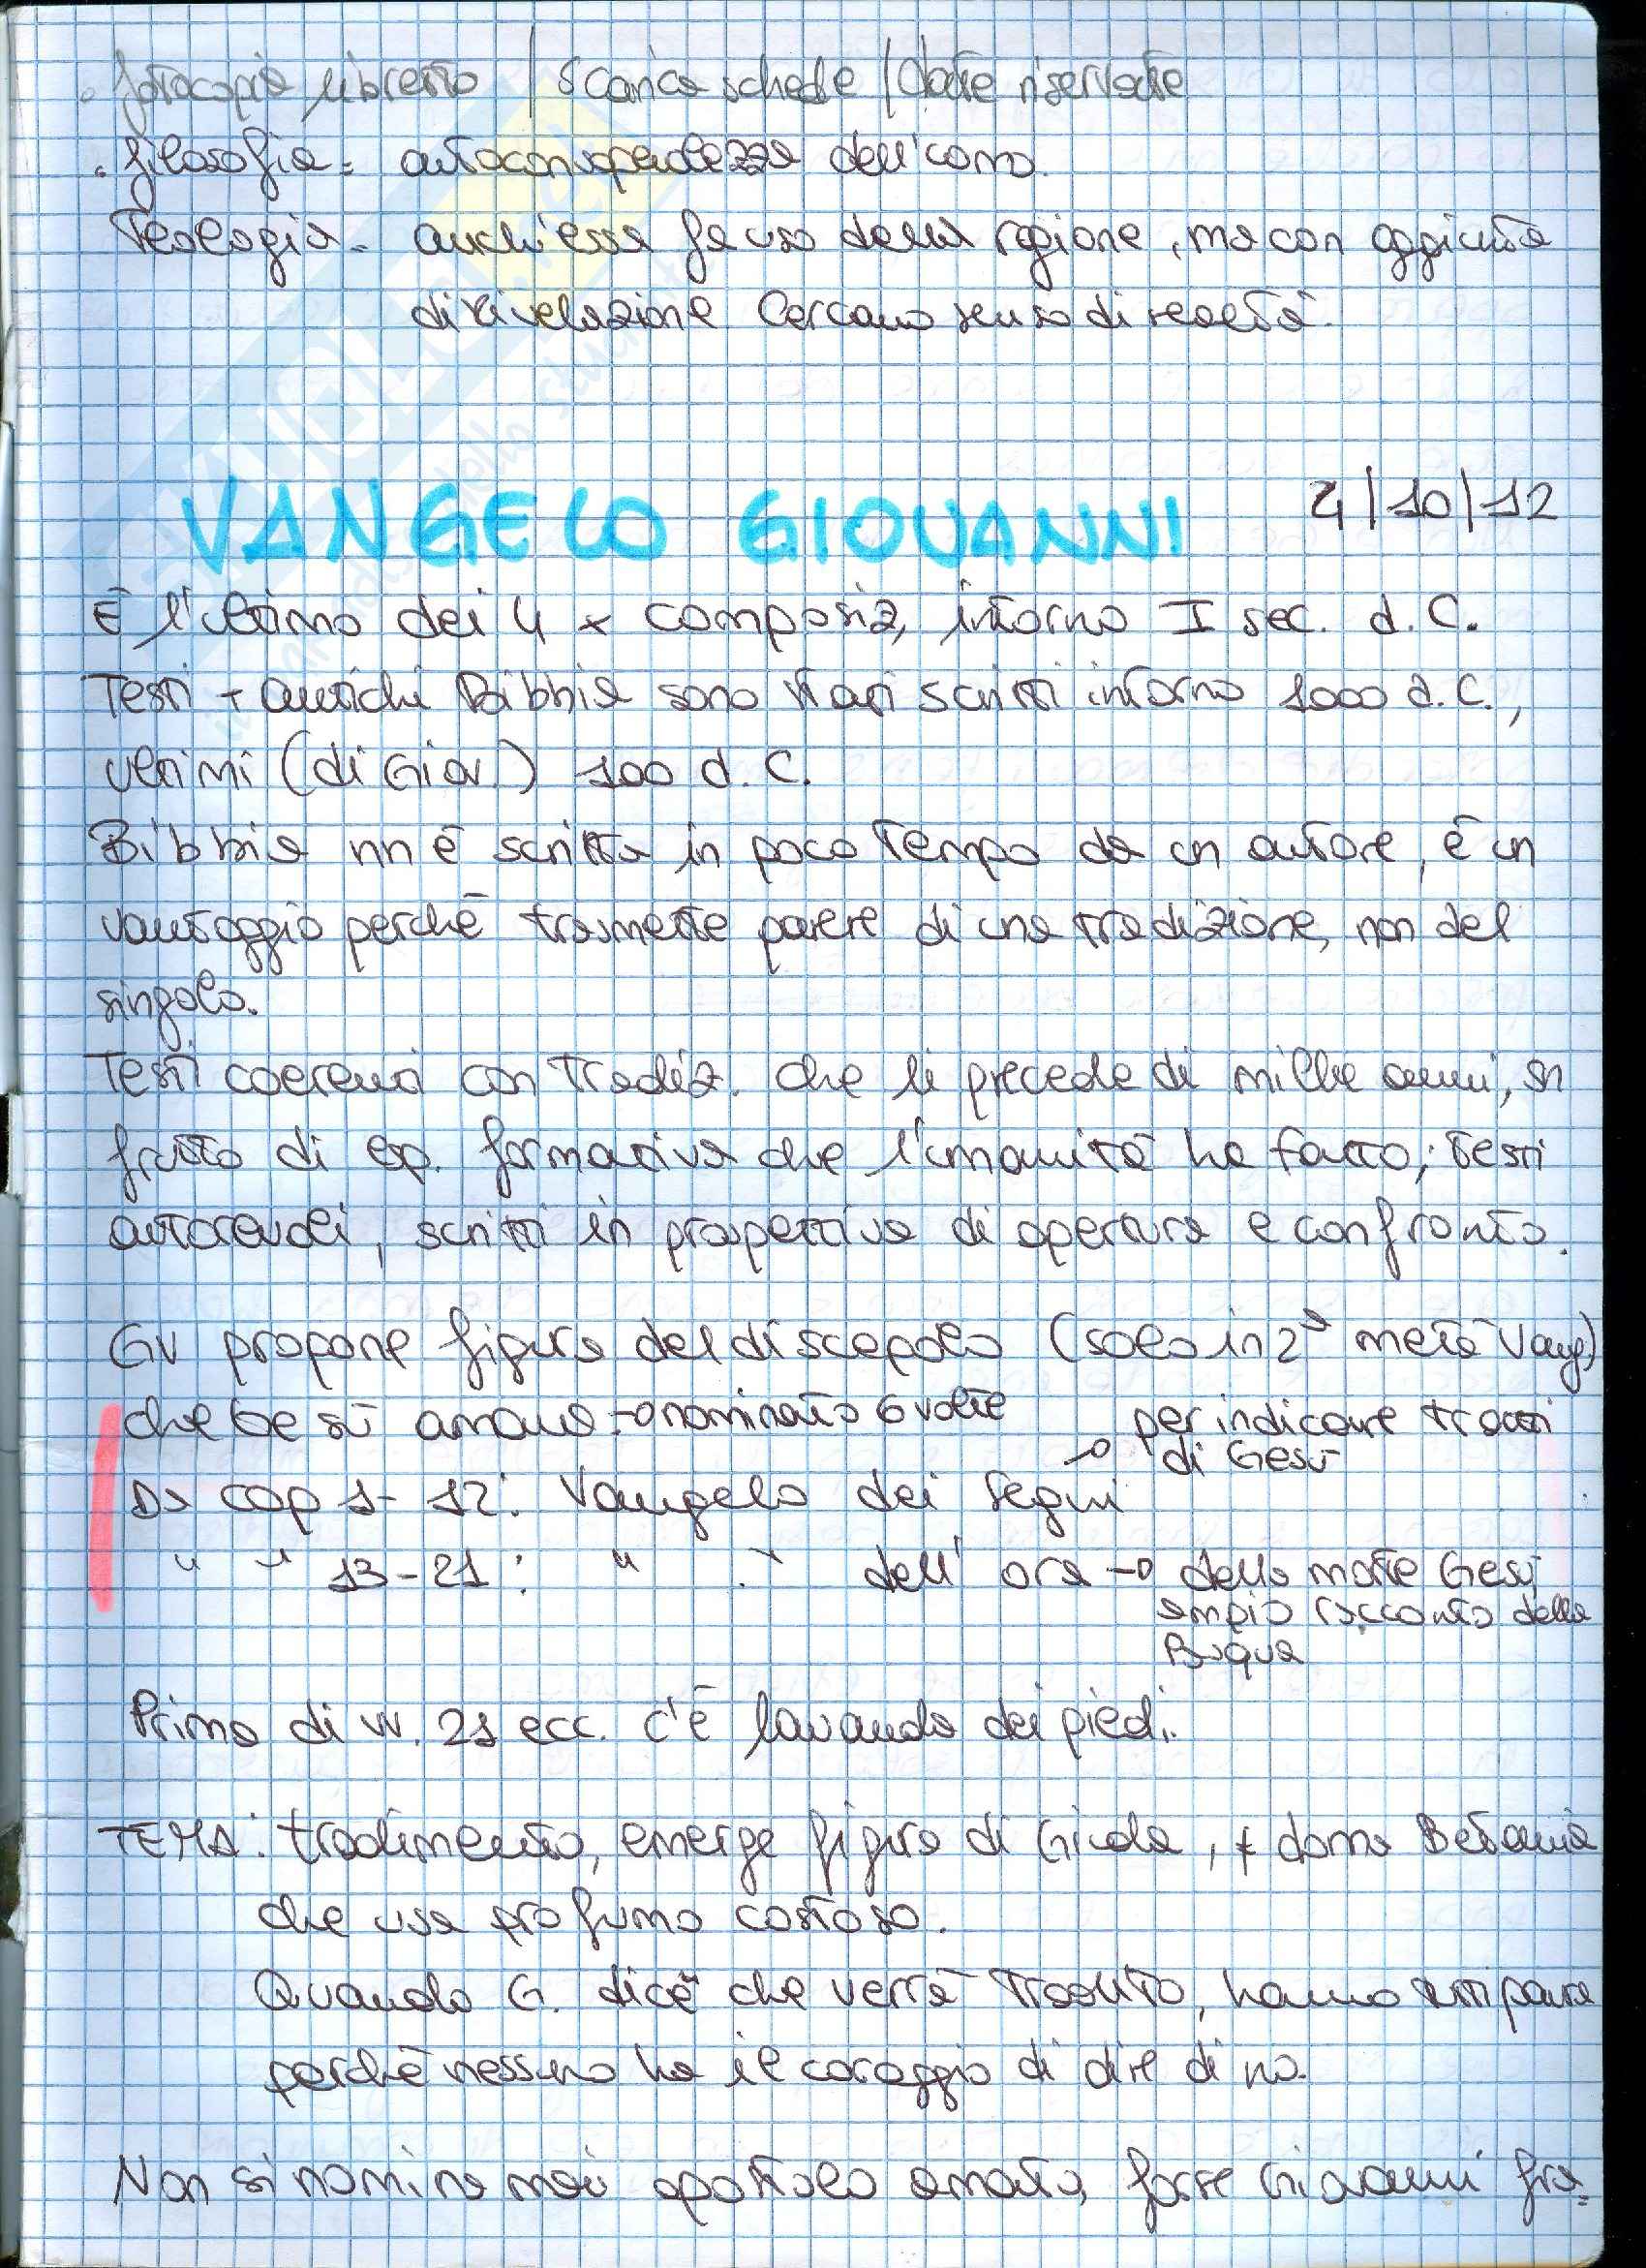 . fotocopia libretto / scarica schede / date riservate
. filosofia = autoconsapevolezza dell'uomo.
Teologia = anch'essa fa uso della ragione, ma con aggiunta
di rivelazione Cercano senso di realtà.
VANGELO GIOVANNI 4/10/12
È l'ultimo dei 4 x composiz, intorno I sec. d.C.
Testi + antichi Bibbia sono stati scritti intorno 1000 a.C.,
ultimi (di Giov.) 100 d.C.
Bibbia nn è scritta in poco tempo da un autore, è un
vantaggio perchè trasmette parere di una tradizione, non del
singolo.
Testi coerenti con tradiz. che li precede di mille anni, sn
frutto di esp. formativa che l'umanità ha fatto; testi
autorevoli, scritti in prospettiva di apertura e confronto.
Gv propone figura del discepolo (solo in 2ª metà Vang)
che Gesù amava -o nominato 6 volte
per indicare tratti
di Gesù
Da cap 1-12: Vangelo dei Segni -o
" " 13-21: " " dell'ora -o della morte Gesù
ampio racconto della
Pasqua
Prima di vv. 21 ecc. c'è lavanda dei piedi.
TEMA: tradimento, emerge figura di Giuda, ≠ donna Betania
che usa profumo costoso.
Quando G. dice che verrà tradito, hanno tutti paura
perchè nessuno ha il coraggio di dire di no.
Non si nomina mai apostolo amato, forse Giovanni fra=
SKUOLA.net
il mondo dello studente